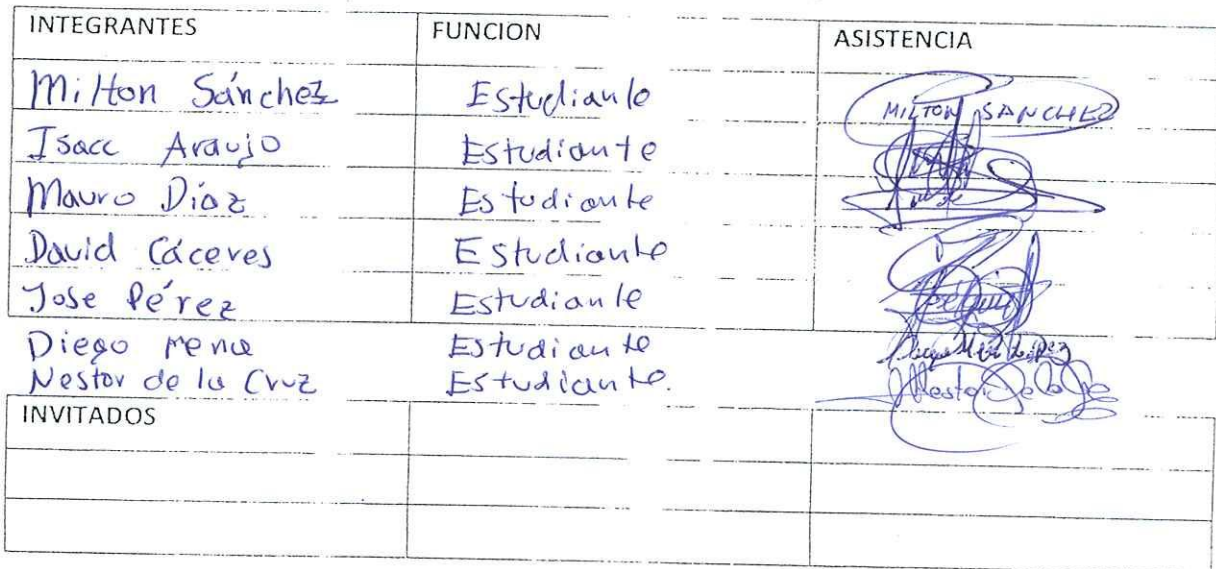 INTEGRANTES FUNCION ASISTENCIA
Milton Sánchez Estudiante MILTON SANCHEZ
Isacc Araujo Estudiante
Mauro Díaz Estudiante
David Cáceres Estudiante
Jose Pérez Estudiante
Diego Mena Estudiante
Nestor de la Cruz Estudiante. Nestor De la
INVITADOS